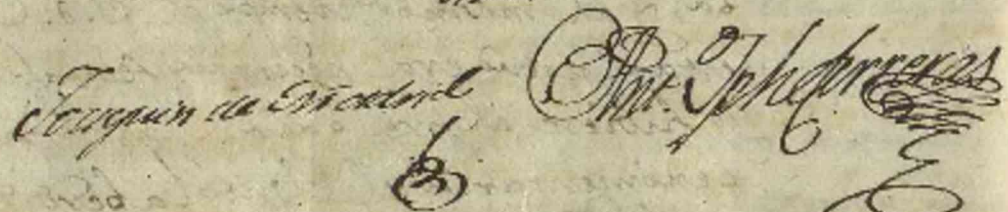 Joaquin de Madrid Ant. Jph Carreras